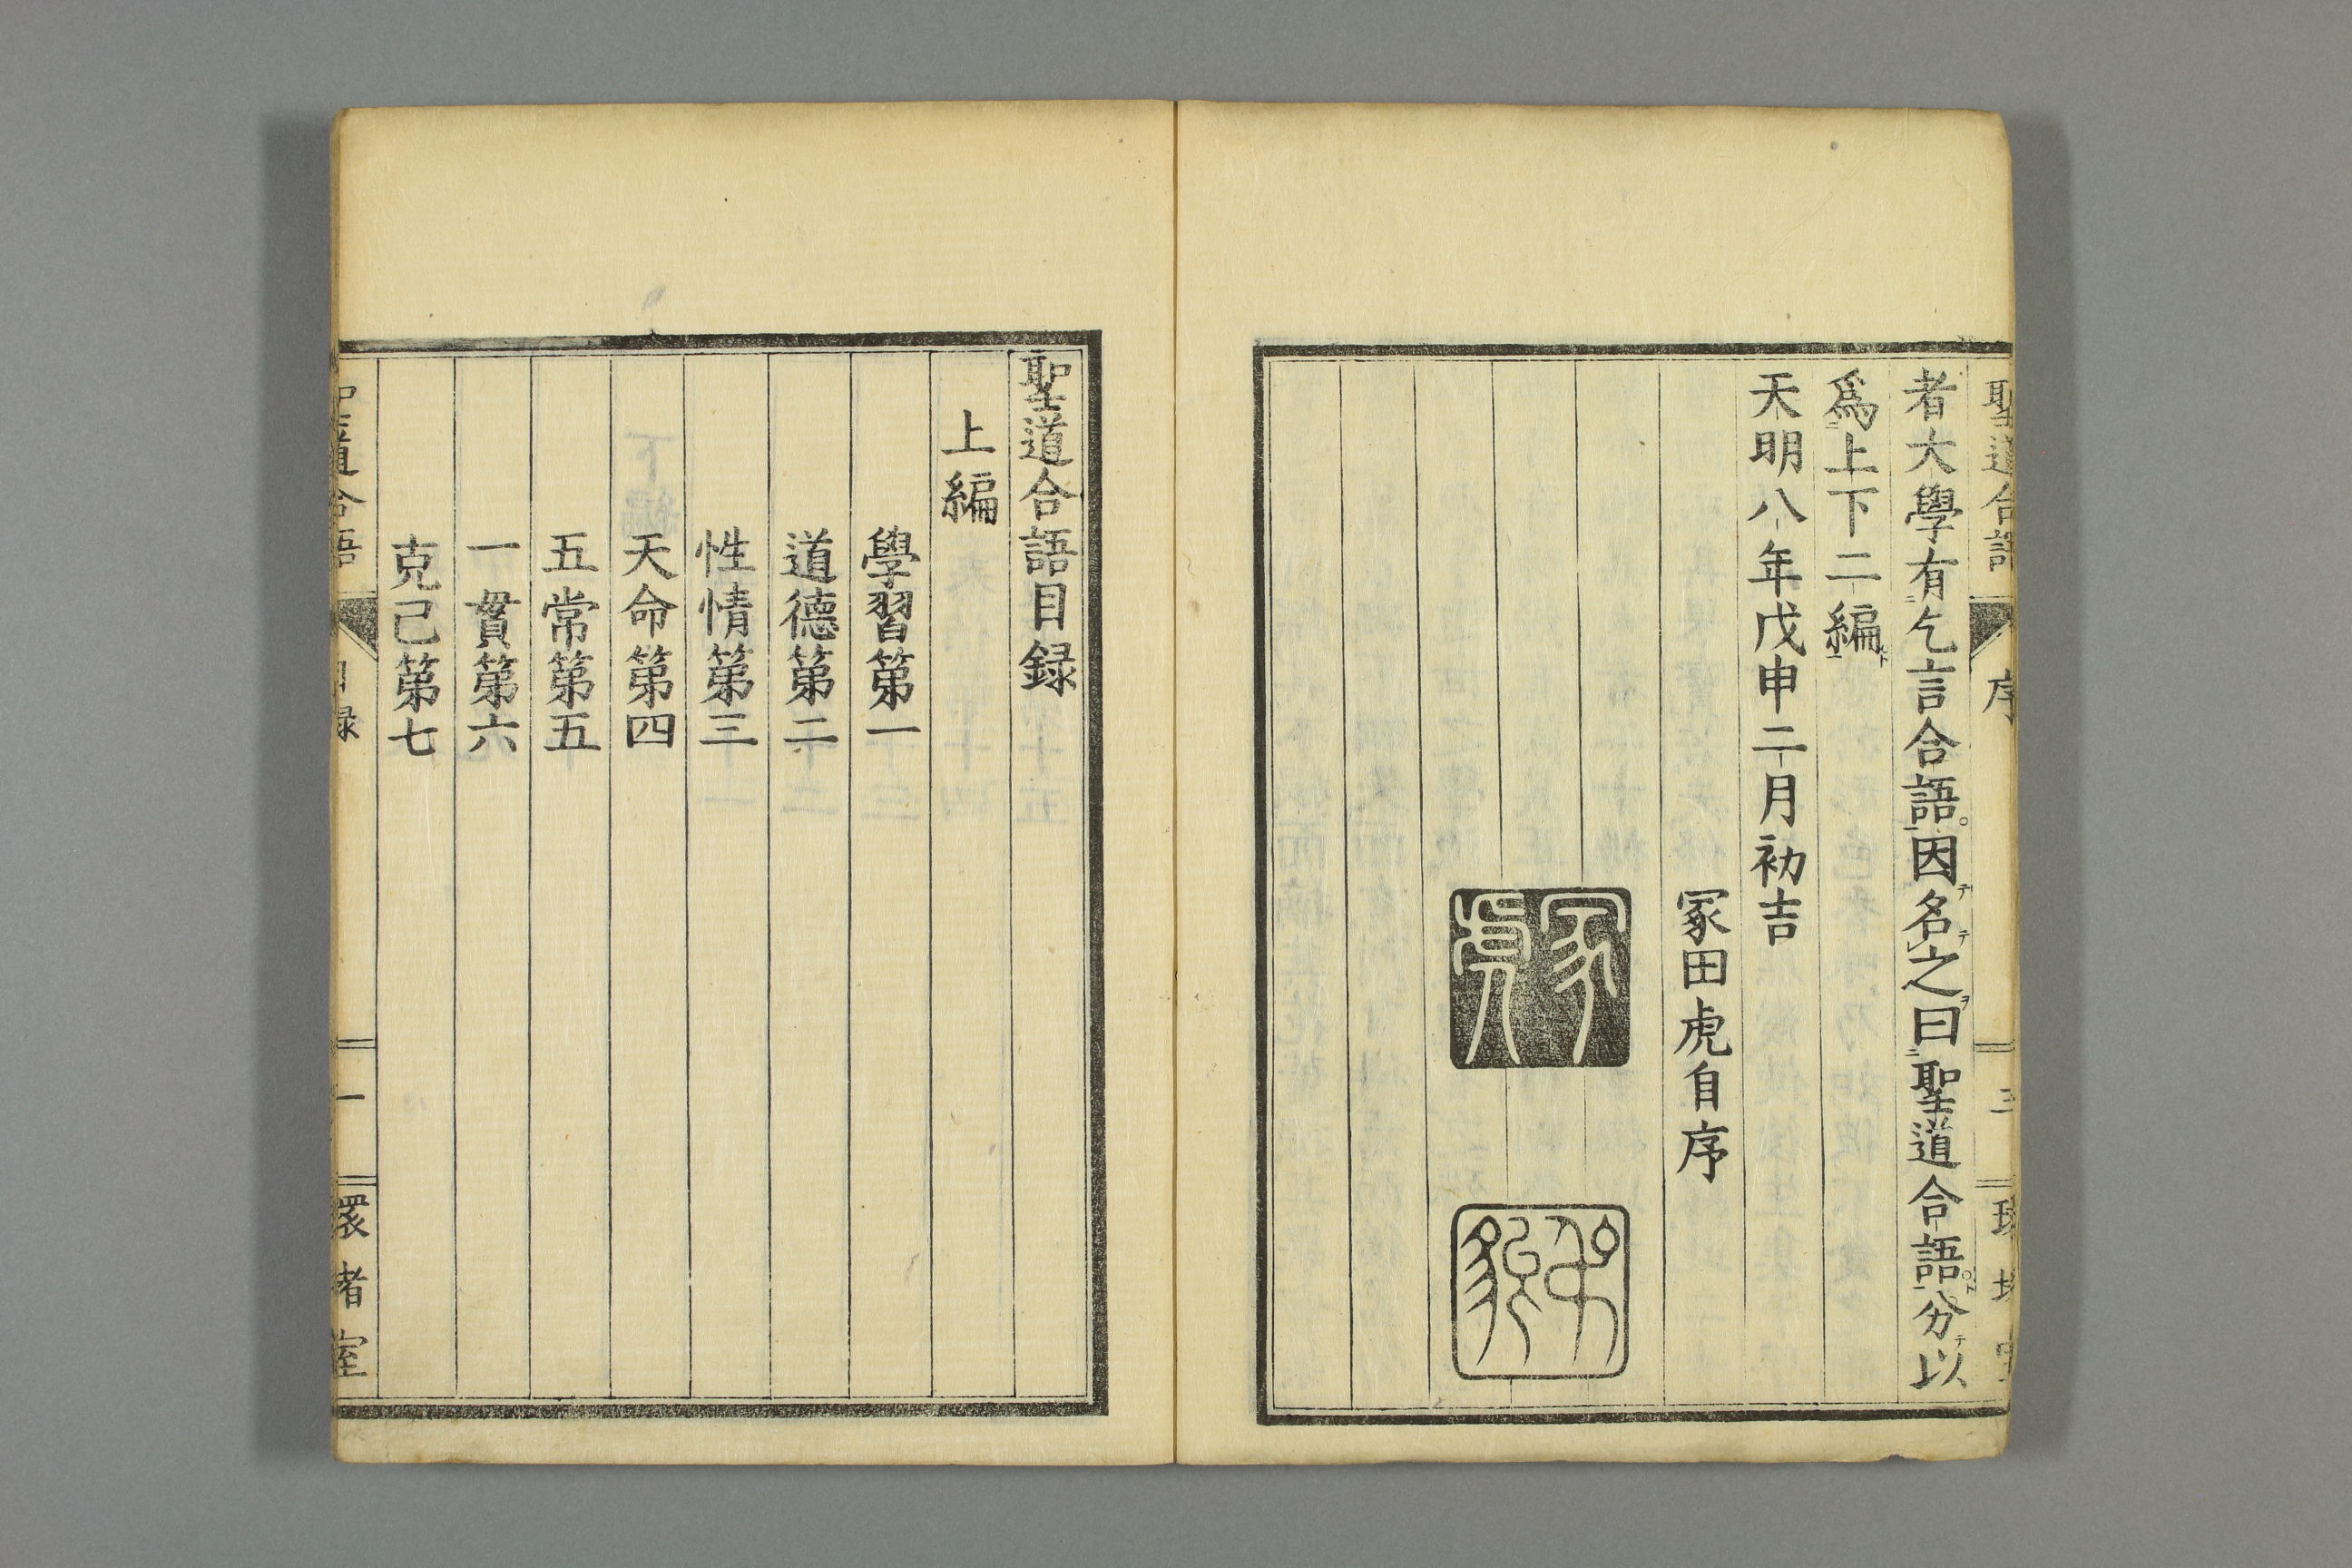 聖道合語 序 三
者大學有乞言合語因名之曰聖道合語分以
爲上下二編
天明八年戊申二月初吉
冢田虎自序
冢虎
聖道合語目録
上編
學習第一
道德第二
性情第三
天命第四
五常第五
一貫第六
克己第七
聖道合語 目録 一 環堵室